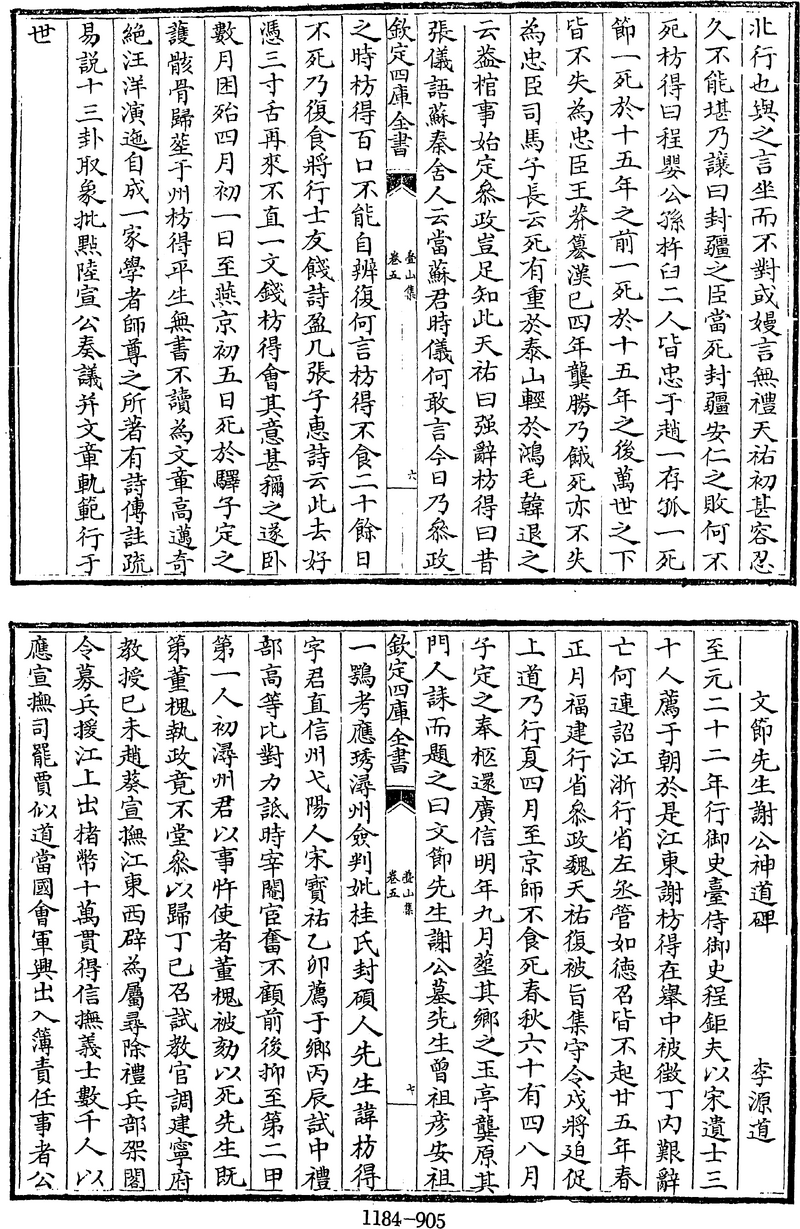 北行也與之言坐而不對或嫚言無禮天祐初甚容忍
久不能堪乃讓曰封疆之臣當死封疆安仁之敗何不
死枋得曰程嬰公孫杵臼二人皆忠于趙一存孤一死
節一死於十五年之前一死於十五年之後萬世之下
皆不失為忠臣王莽簒漢已四年龔勝乃餓死亦不失
為忠臣司馬子長云死有重於泰山輕於鴻毛韓退之
云葢棺事始定參政豈足知此天祐曰强辭枋得曰昔
張儀語蘇秦舍人云當蘇君時儀何敢言今日乃參政
欽定四庫全書
疊山集
卷五
六
之時枋得百口不能自辨復何言枋得不食二十餘日
不死乃復食將行士友餞詩盈几張子惠詩云此去好
憑三寸舌再來不直一文錢枋得會其意甚稱之遂卧
數月困殆四月初一日至燕京初五日死於驛子定之
護骸骨歸塟于州枋得平生無書不讀為文章高邁奇
絕汪洋演迤自成一家學者師尊之所著有詩傳註疏
易説十三卦取象批㸃陸宣公奏議并文章軌範行于
世
文節先生謝公神道碑
李源道
至元二十二年行御史臺侍御史程鉅夫以宋遺士三
十人薦于朝於是江東謝枋得在舉中被徵丁內艱辭
亡何連詔江浙行省左丞管如德召皆不起廿五年春
正月福建行省參政魏天祐復被旨集守令戍將迫促
上道乃行夏四月至京師不食死春秋六十有四八月
子定之奉柩還廣信明年九月塟其鄉之玉亭龔原其
門人誄而題之曰文節先生謝公墓先生曾祖彦安祖
欽定四庫全書
疊山集
卷五
七
一鶚考應琇潯州僉判妣桂氏封碩人先生諱枋得
字君直信州弋陽人宋寳祐乙卯薦于鄉丙辰試中禮
部高等比對力詆時宰閹宦奮不顧前後抑至第二甲
第一人初潯州君以事忤使者董槐被劾以死先生既
第董槐執政竟不堂參以歸丁已召試教官調建寧府
教授已未趙葵宣撫江東西辟為屬尋除禮兵部架閣
令募兵援江上出楮幣十萬貫得信撫義士數千人以
應宣撫司罷賈似道當國會軍興出入簿責任事者公
1184-905